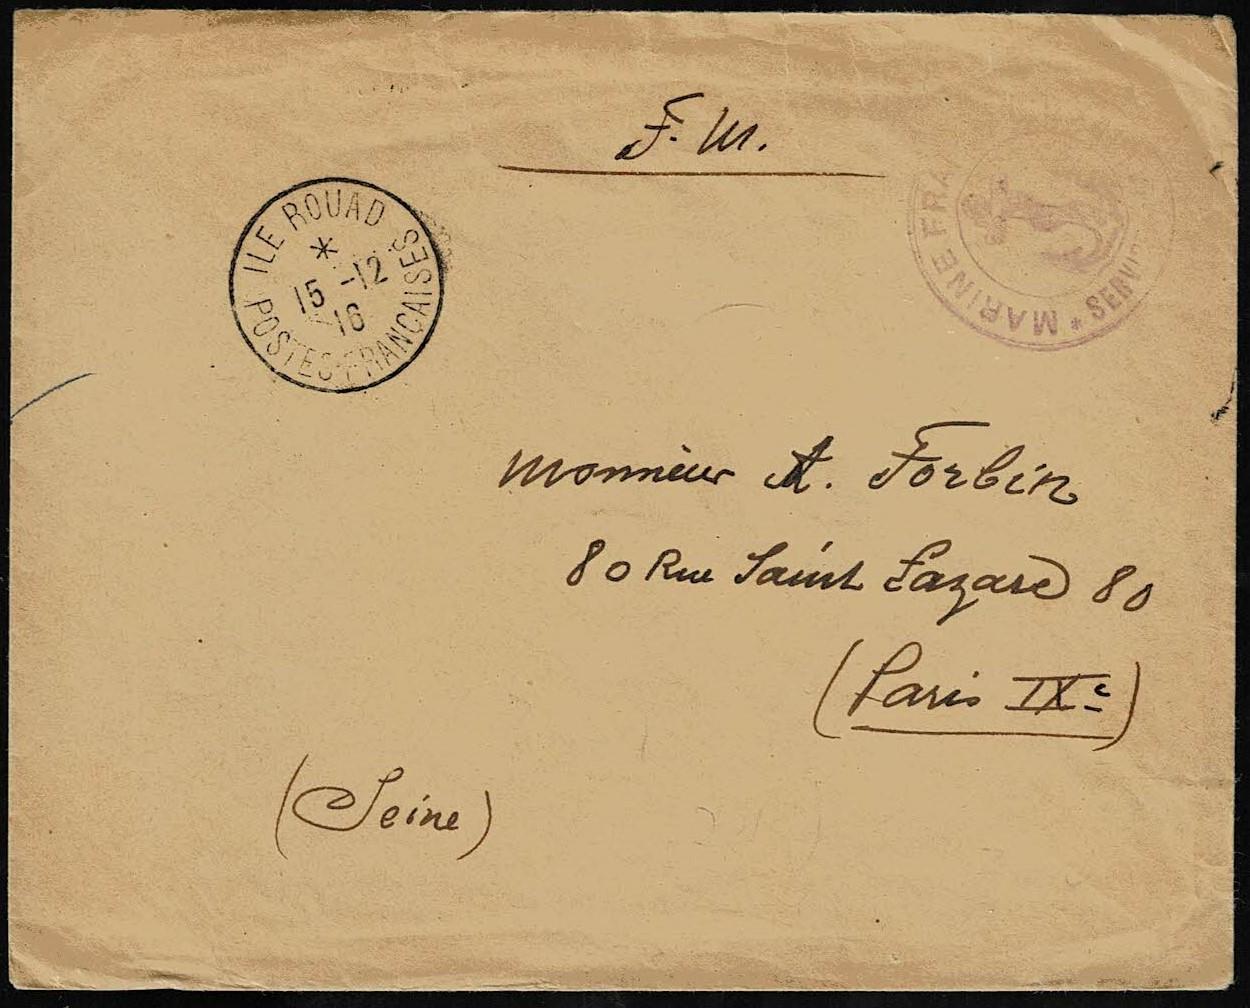 F. M.
ILE ROUAD
*
15 -12
16
POSTES FRANCAISES
MARINE FRA
* SERVI
Monsieur A. Forbin
80 Rue Saint Lazare 80
(Paris IXe)
(Seine)